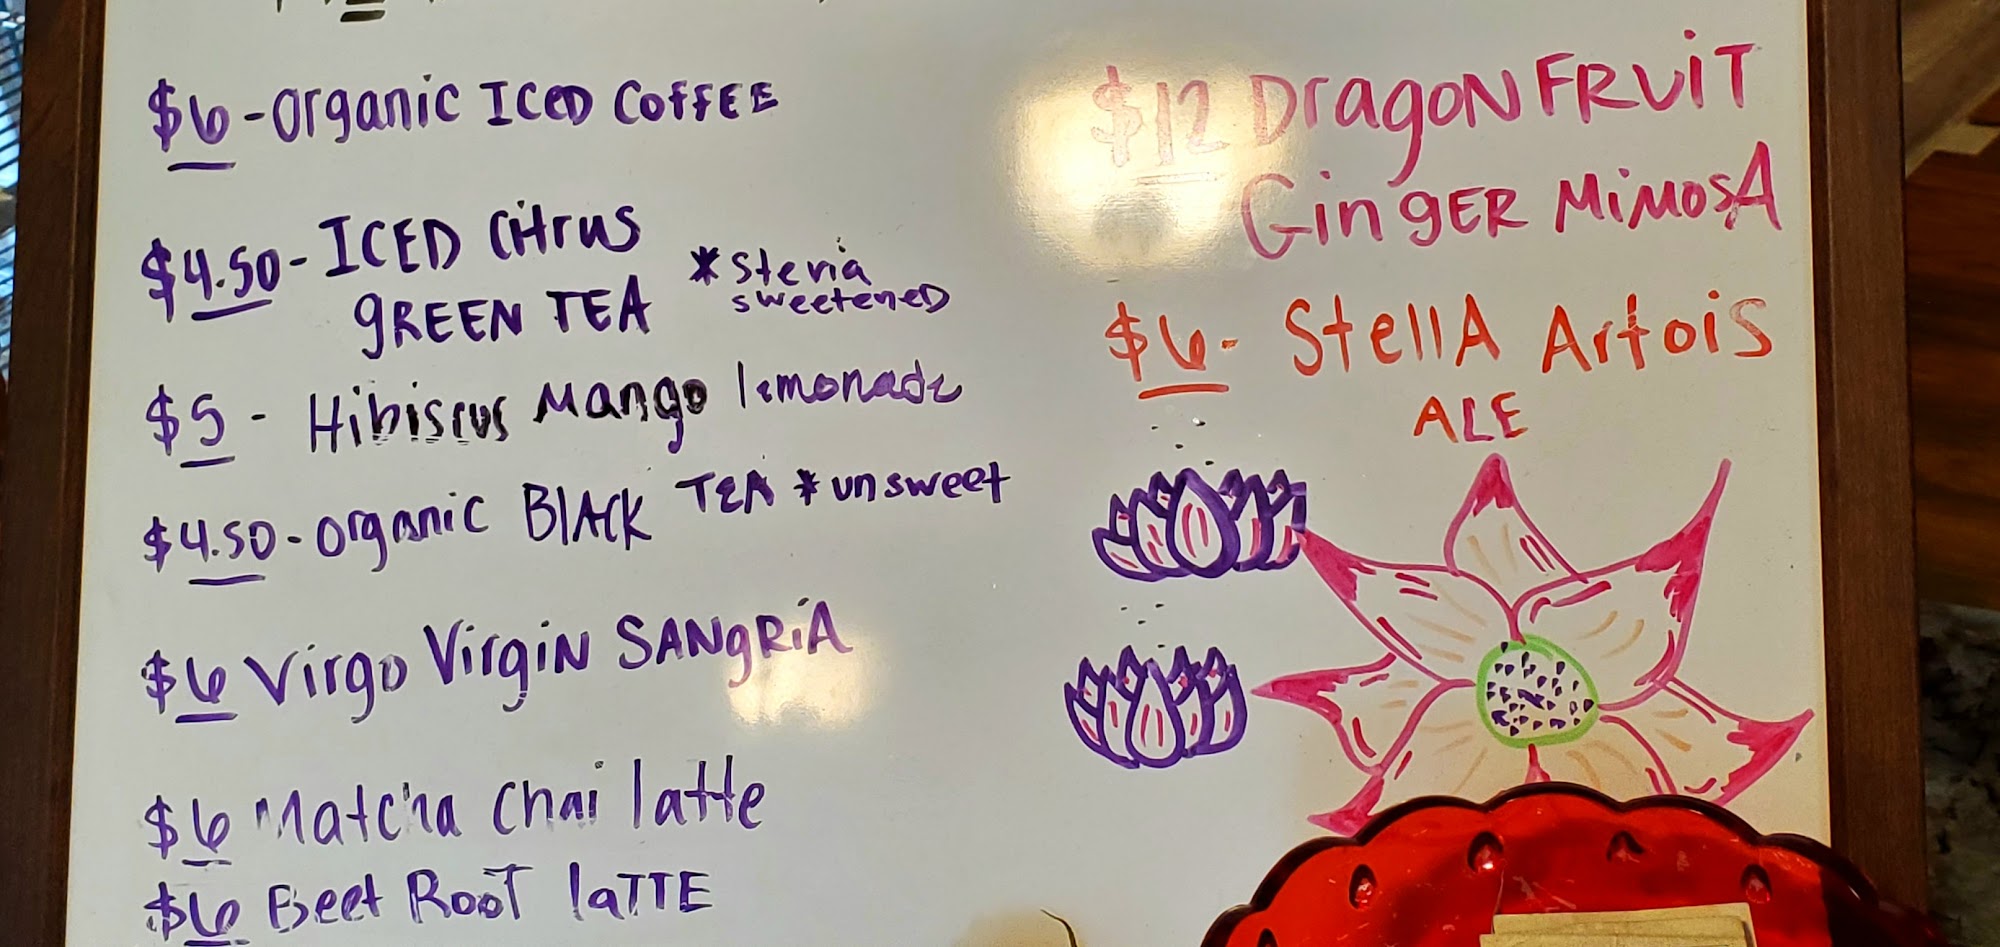 $6 - Organic Iced Coffee
$4.50 - ICED Citrus
GREEN TEA
*stevia
sweetened
$5 - Hibiscus Mango lemonade
$4.50 - organic BLACK TEA *unsweet
$6 Virgo Virgin SANgRiA
$6 Matcha Chai latte
$6 Beet Root laTTE
$12 DragoN FRUiT
GingER MiMosA
$6 - StellA Artois
ALE